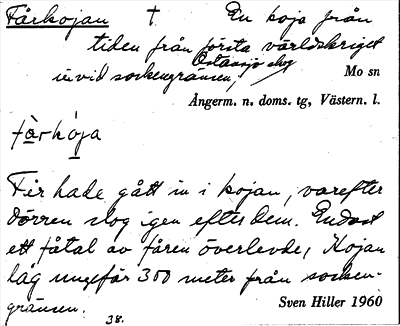 Fårkojan † En koja från
tiden från första världskriget
invid sockengränsen, Östansjö skog
Mo sn
Ångerm. n. doms. tg, Västern. l.
fàrkoja
Får hade gått in i kojan, varefter
dörren slog igen efter dem. Endast
ett fåtal av fåren överlevde, Kojan
låg ungefär 300 meter från socken-
gränsen.
Sven Hiller 1960
38.